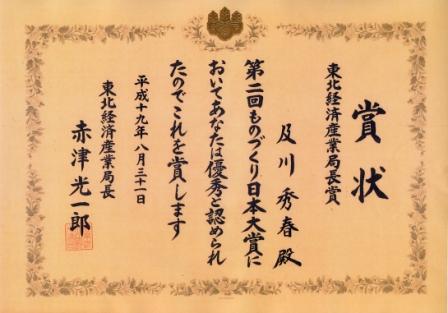 賞状
東北経済産業局長賞
及川秀春殿
第二回ものづくり日本大賞に
おいてあなたは優秀と認められ
たのでこれを賞します
平成十九年八月三十一日
東北経済産業局長
赤津光一郎